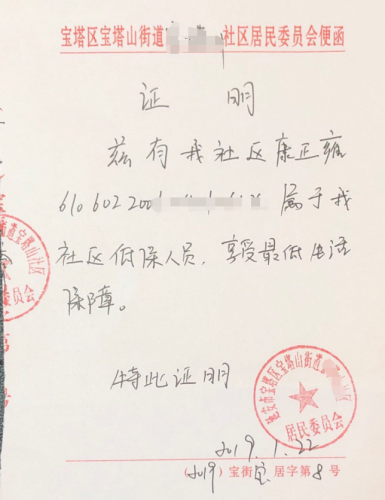 宝塔区宝塔山街道社区居民委员会便函
证 明
兹有我社区康正雍
610602200 属于我
社区低保人员,享受最低生活
保障。
特此证明
延安市宝塔区宝塔山街道
居民委员会
2019.1.22
(2019)宝街宝居字第8号
宝塔区宝塔山社区
委员会